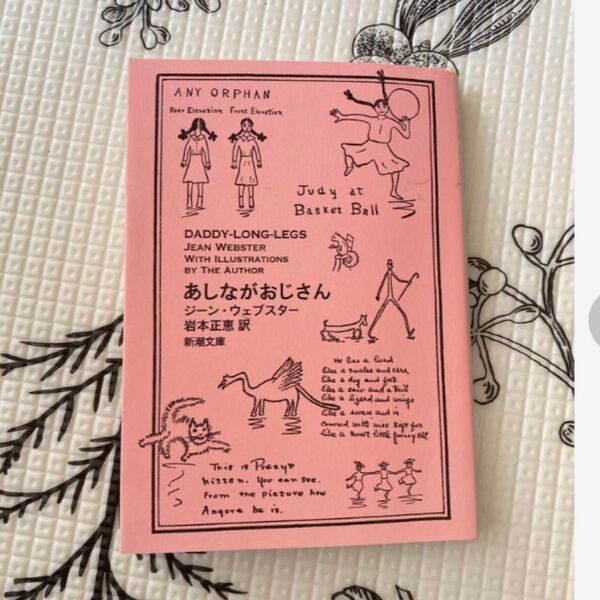 ANY ORPHAN
Rear Elevation Front Elevation
Judy at
Basket Ball
DADDY-LONG-LEGS
JEAN WEBSTER
WITH ILLUSTRATIONS
BY THE AUTHOR
あしながおじさん
ジーン・ウェブスター
岩本正恵 訳
新潮文庫
He has a head
like a snake and ears
like a dog and feet
like a cow and a tail
like a lizard and wings
like a swan and is
covered with nice soft fur
like a sweet little pussy cat.
This is Prexy's
kitten. You can see
from the picture how
Angora he is.